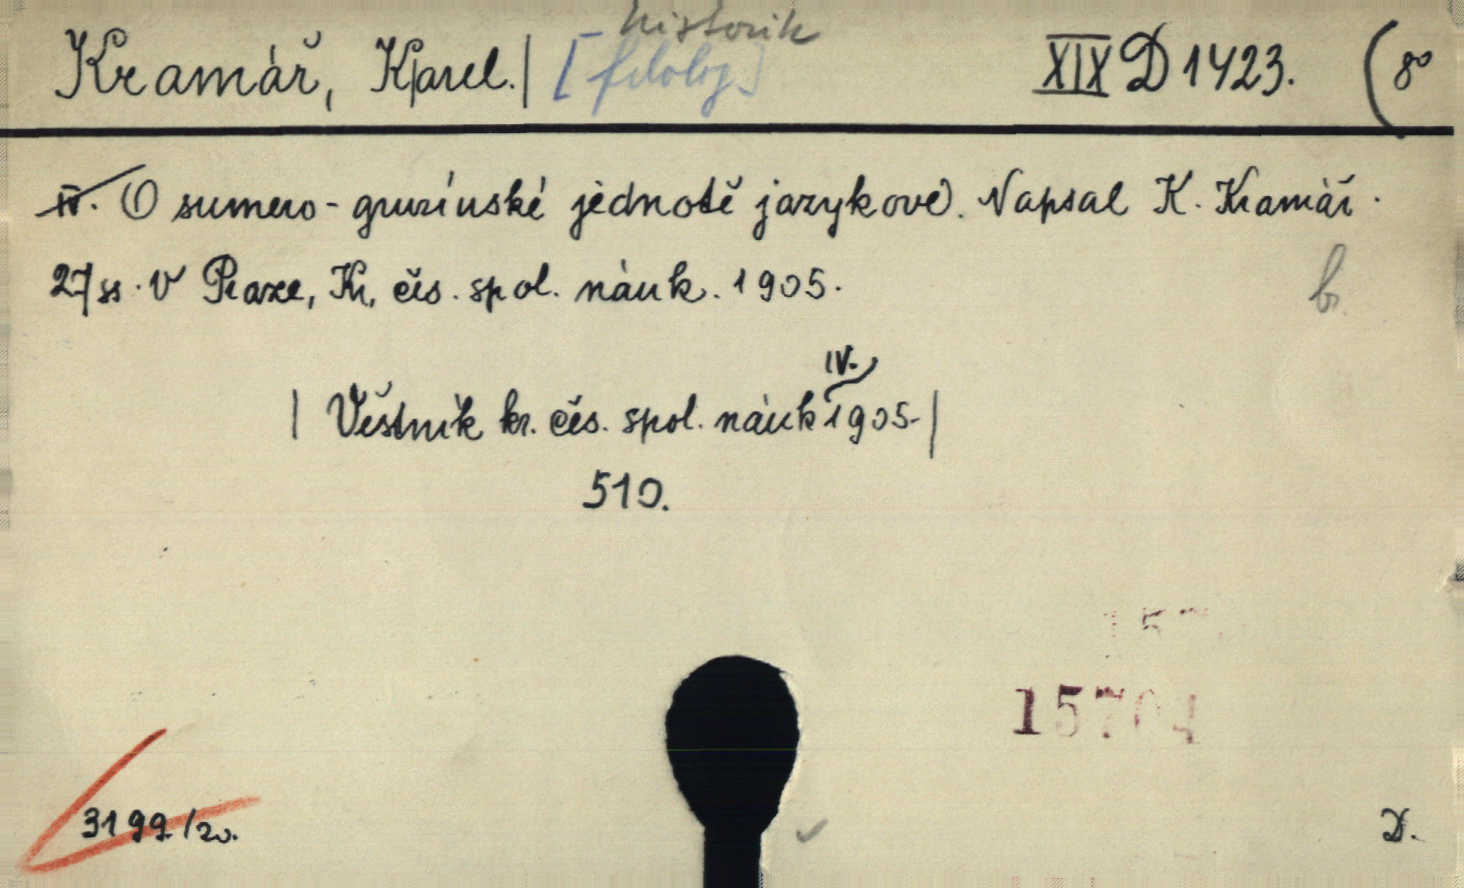 historik
Kramář, K|arel.| [filolog] XIX D 1423. (8°
IV. O sumero-gruzínské jednotě jazykové). Napsal K. Kramář.
27 ss. V Praze, Kr. čes. spol. náuk. 1905. br.
IV.
| Věstník kr. čes. spol. náuk 1905. |
510.
157
15704
3199/20. D.